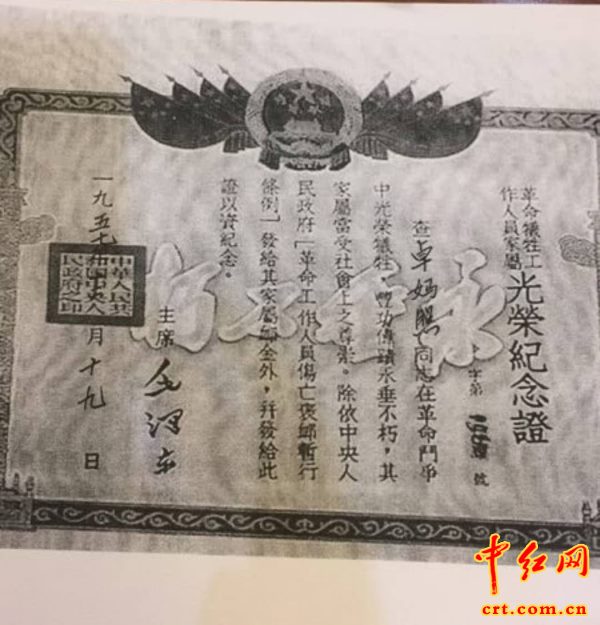 革命犧牲工
作人員家屬
光榮紀念證
字第 號
查卓媽 同志在革命鬥爭
中光榮犧牲，豐功偉蹟永垂不朽，其
家屬當受社會上之尊崇。除依中央人
民政府「革命工作人員傷亡褒卹暫行
條例」發給其家屬卹金外，幷發給此
證以資紀念。
主席 毛澤東
中華人民共
和國中央人
民政府之印
一九五 月十九日
永垂不朽
中红网
crt.com.cn